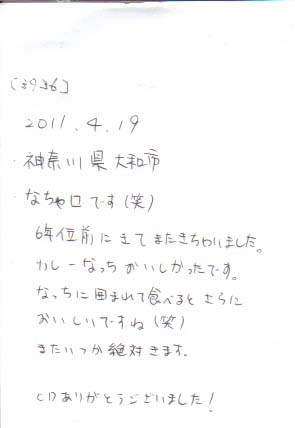 [3936]
2011.4.19
神奈川県大和市
なちゃ口です(笑)
6年位前にきてまたきちゃいました。
カレーなっちおいしかったです。
なっちに囲まれて食べるとさらに
おいしいですね(笑)
またいつか絶対きます。
CDありがとうございました!